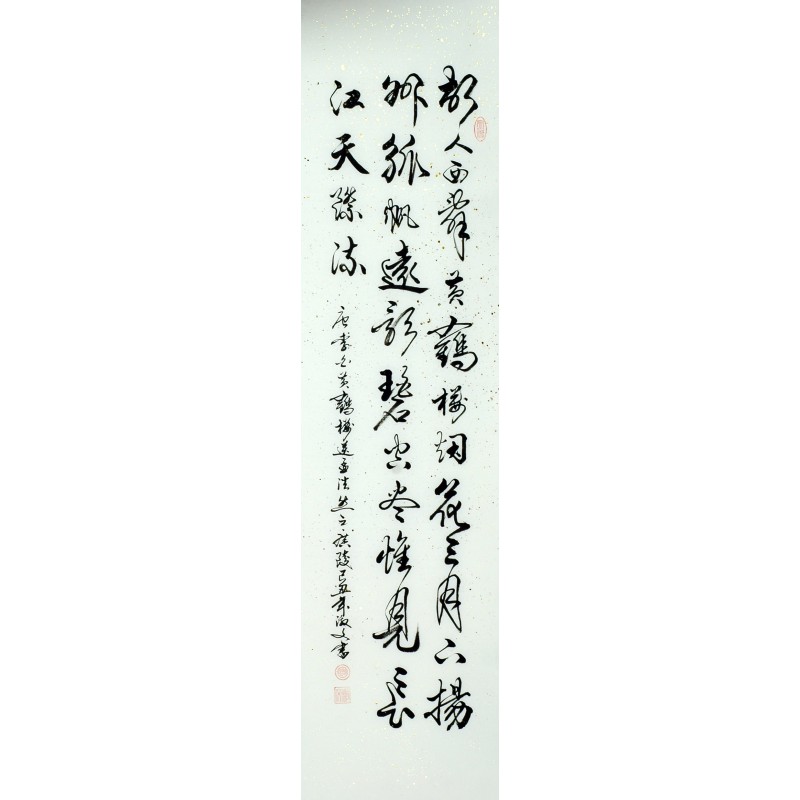 故人西辭黄鶴楼烟花三月下揚
州孤帆遠影碧空尽惟見長
江天際流
唐李白黄鶴楼送孟浩然之廣陵己丑年文書